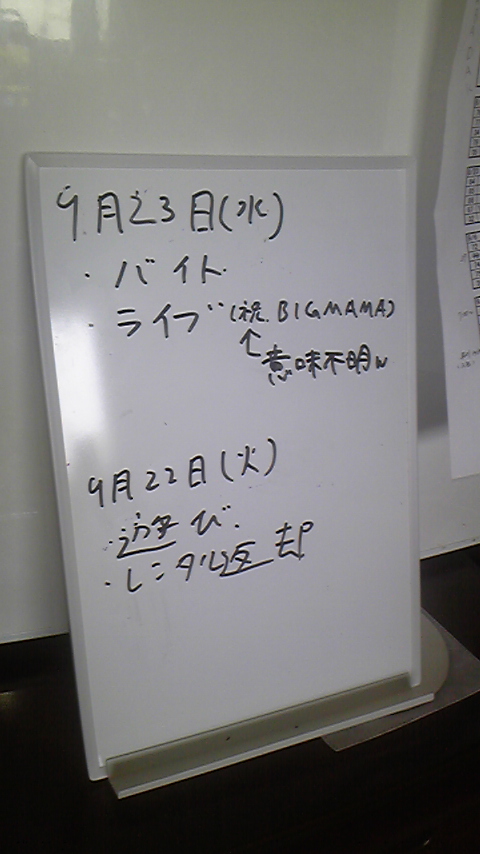 9月23日(水)
・バイト
・ライブ(祝.BIGMAMA)
↑意味不明w
9月22日(火)
・遊び.
・レンタル返却